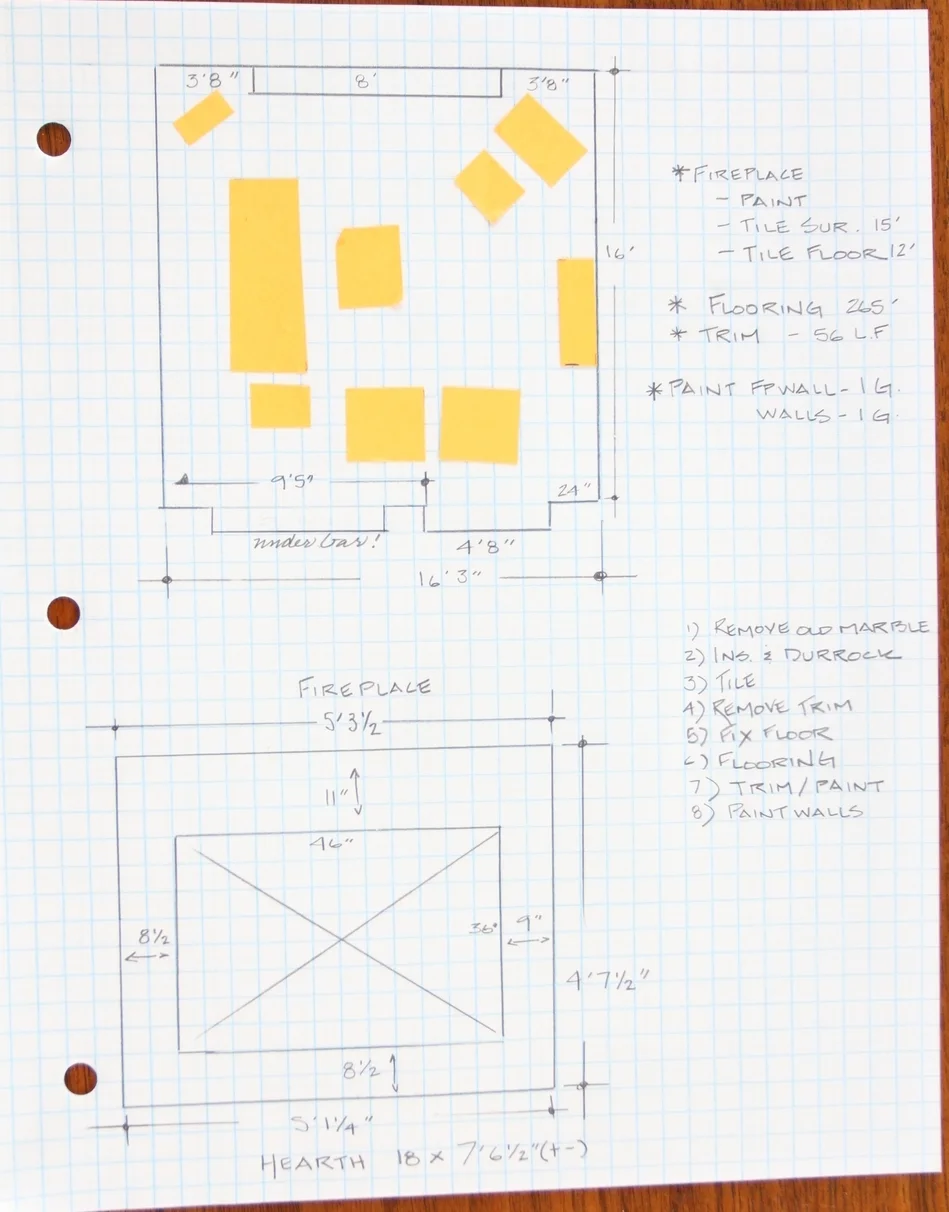 3'8" 8' 3'8"
16'
* FIREPLACE
- PAINT
- TILE SUR. 15'
- TILE FLOOR 12'
* FLOORING 265'
* TRIM - 56 L.F
* PAINT FPWALL - 1 G.
WALLS - 1 G.
9'5" 24"
under bar! 4'8"
16'3"
1) REMOVE OLD MARBLE
2) INS. & DURROCK
3) TILE
4) REMOVE TRIM
5) FIX FLOOR
6) FLOORING
7) TRIM/PAINT
8) PAINT WALLS
FIREPLACE
5'3½
11"
46"
8½ 36" 9"
4'7½"
8½
5'1¼"
HEARTH 18 x 7'6½"(+-)